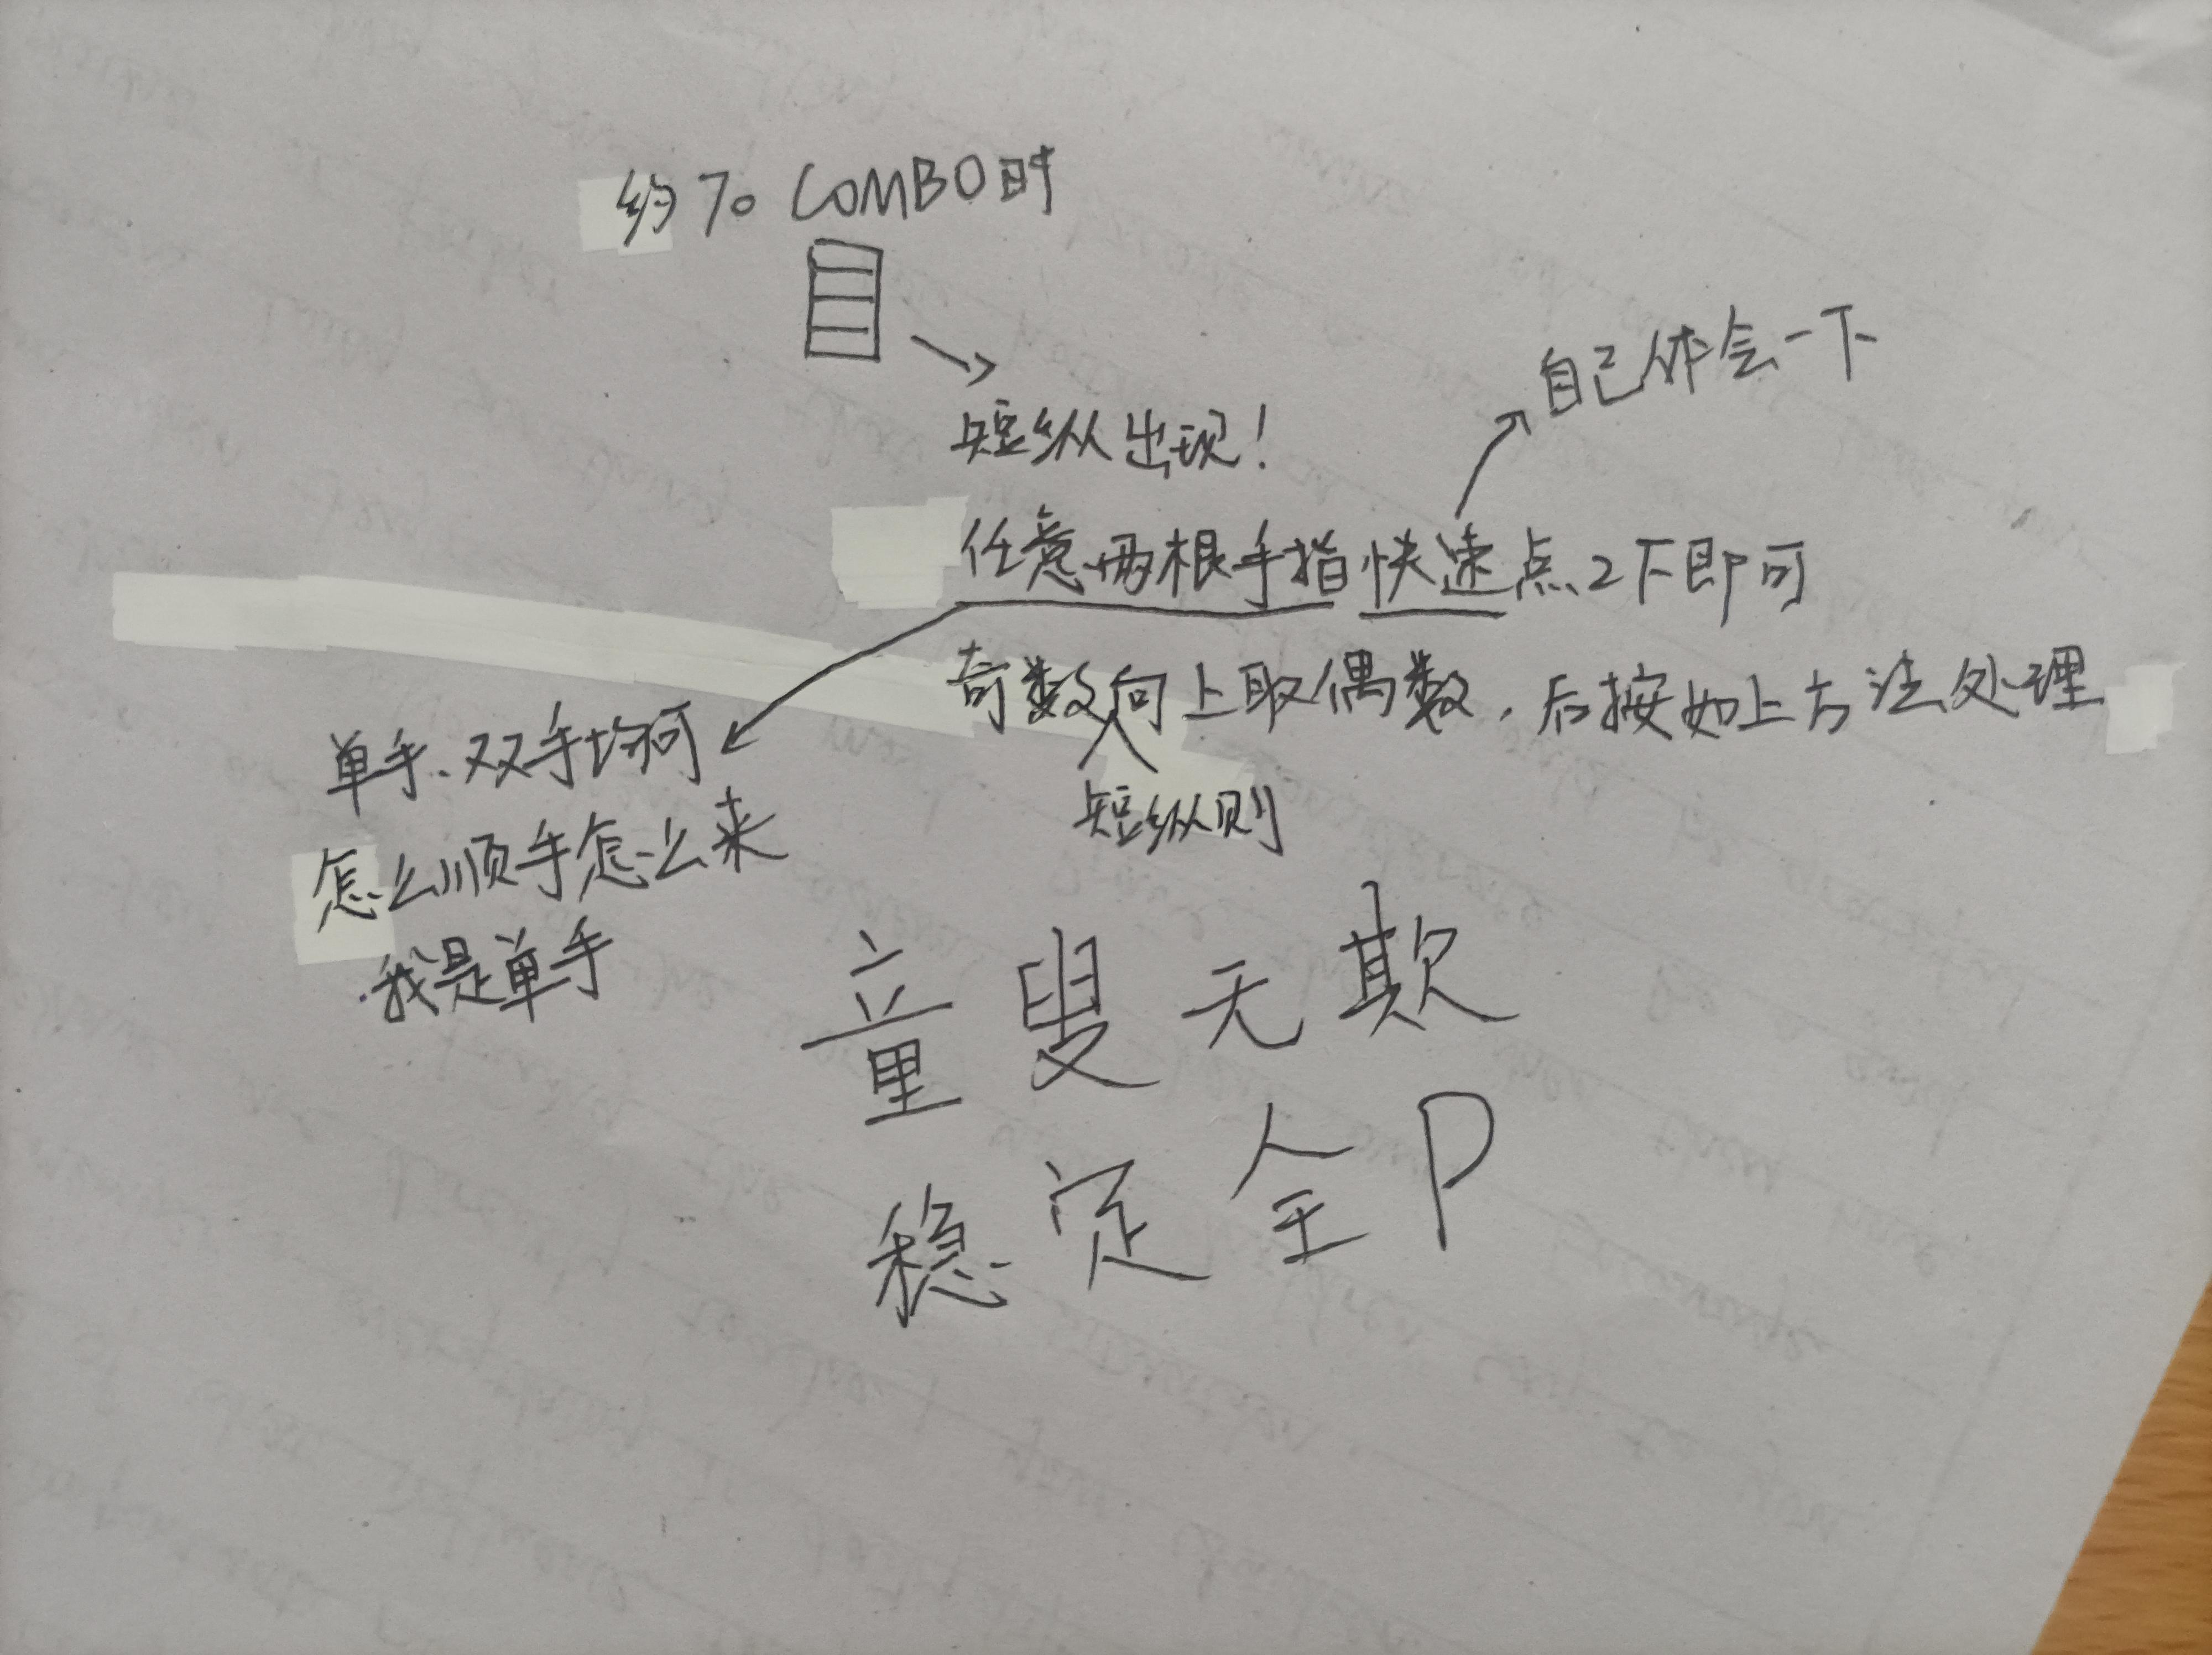 约70 COMBO时
短纵出现！
自己体会一下
任意两根手指快速点2下即可
奇数向上取偶数，后按如上方法处理
短纵则
单手、双手均可
怎么顺手怎么来
我是单手
童叟无欺
稳定全P